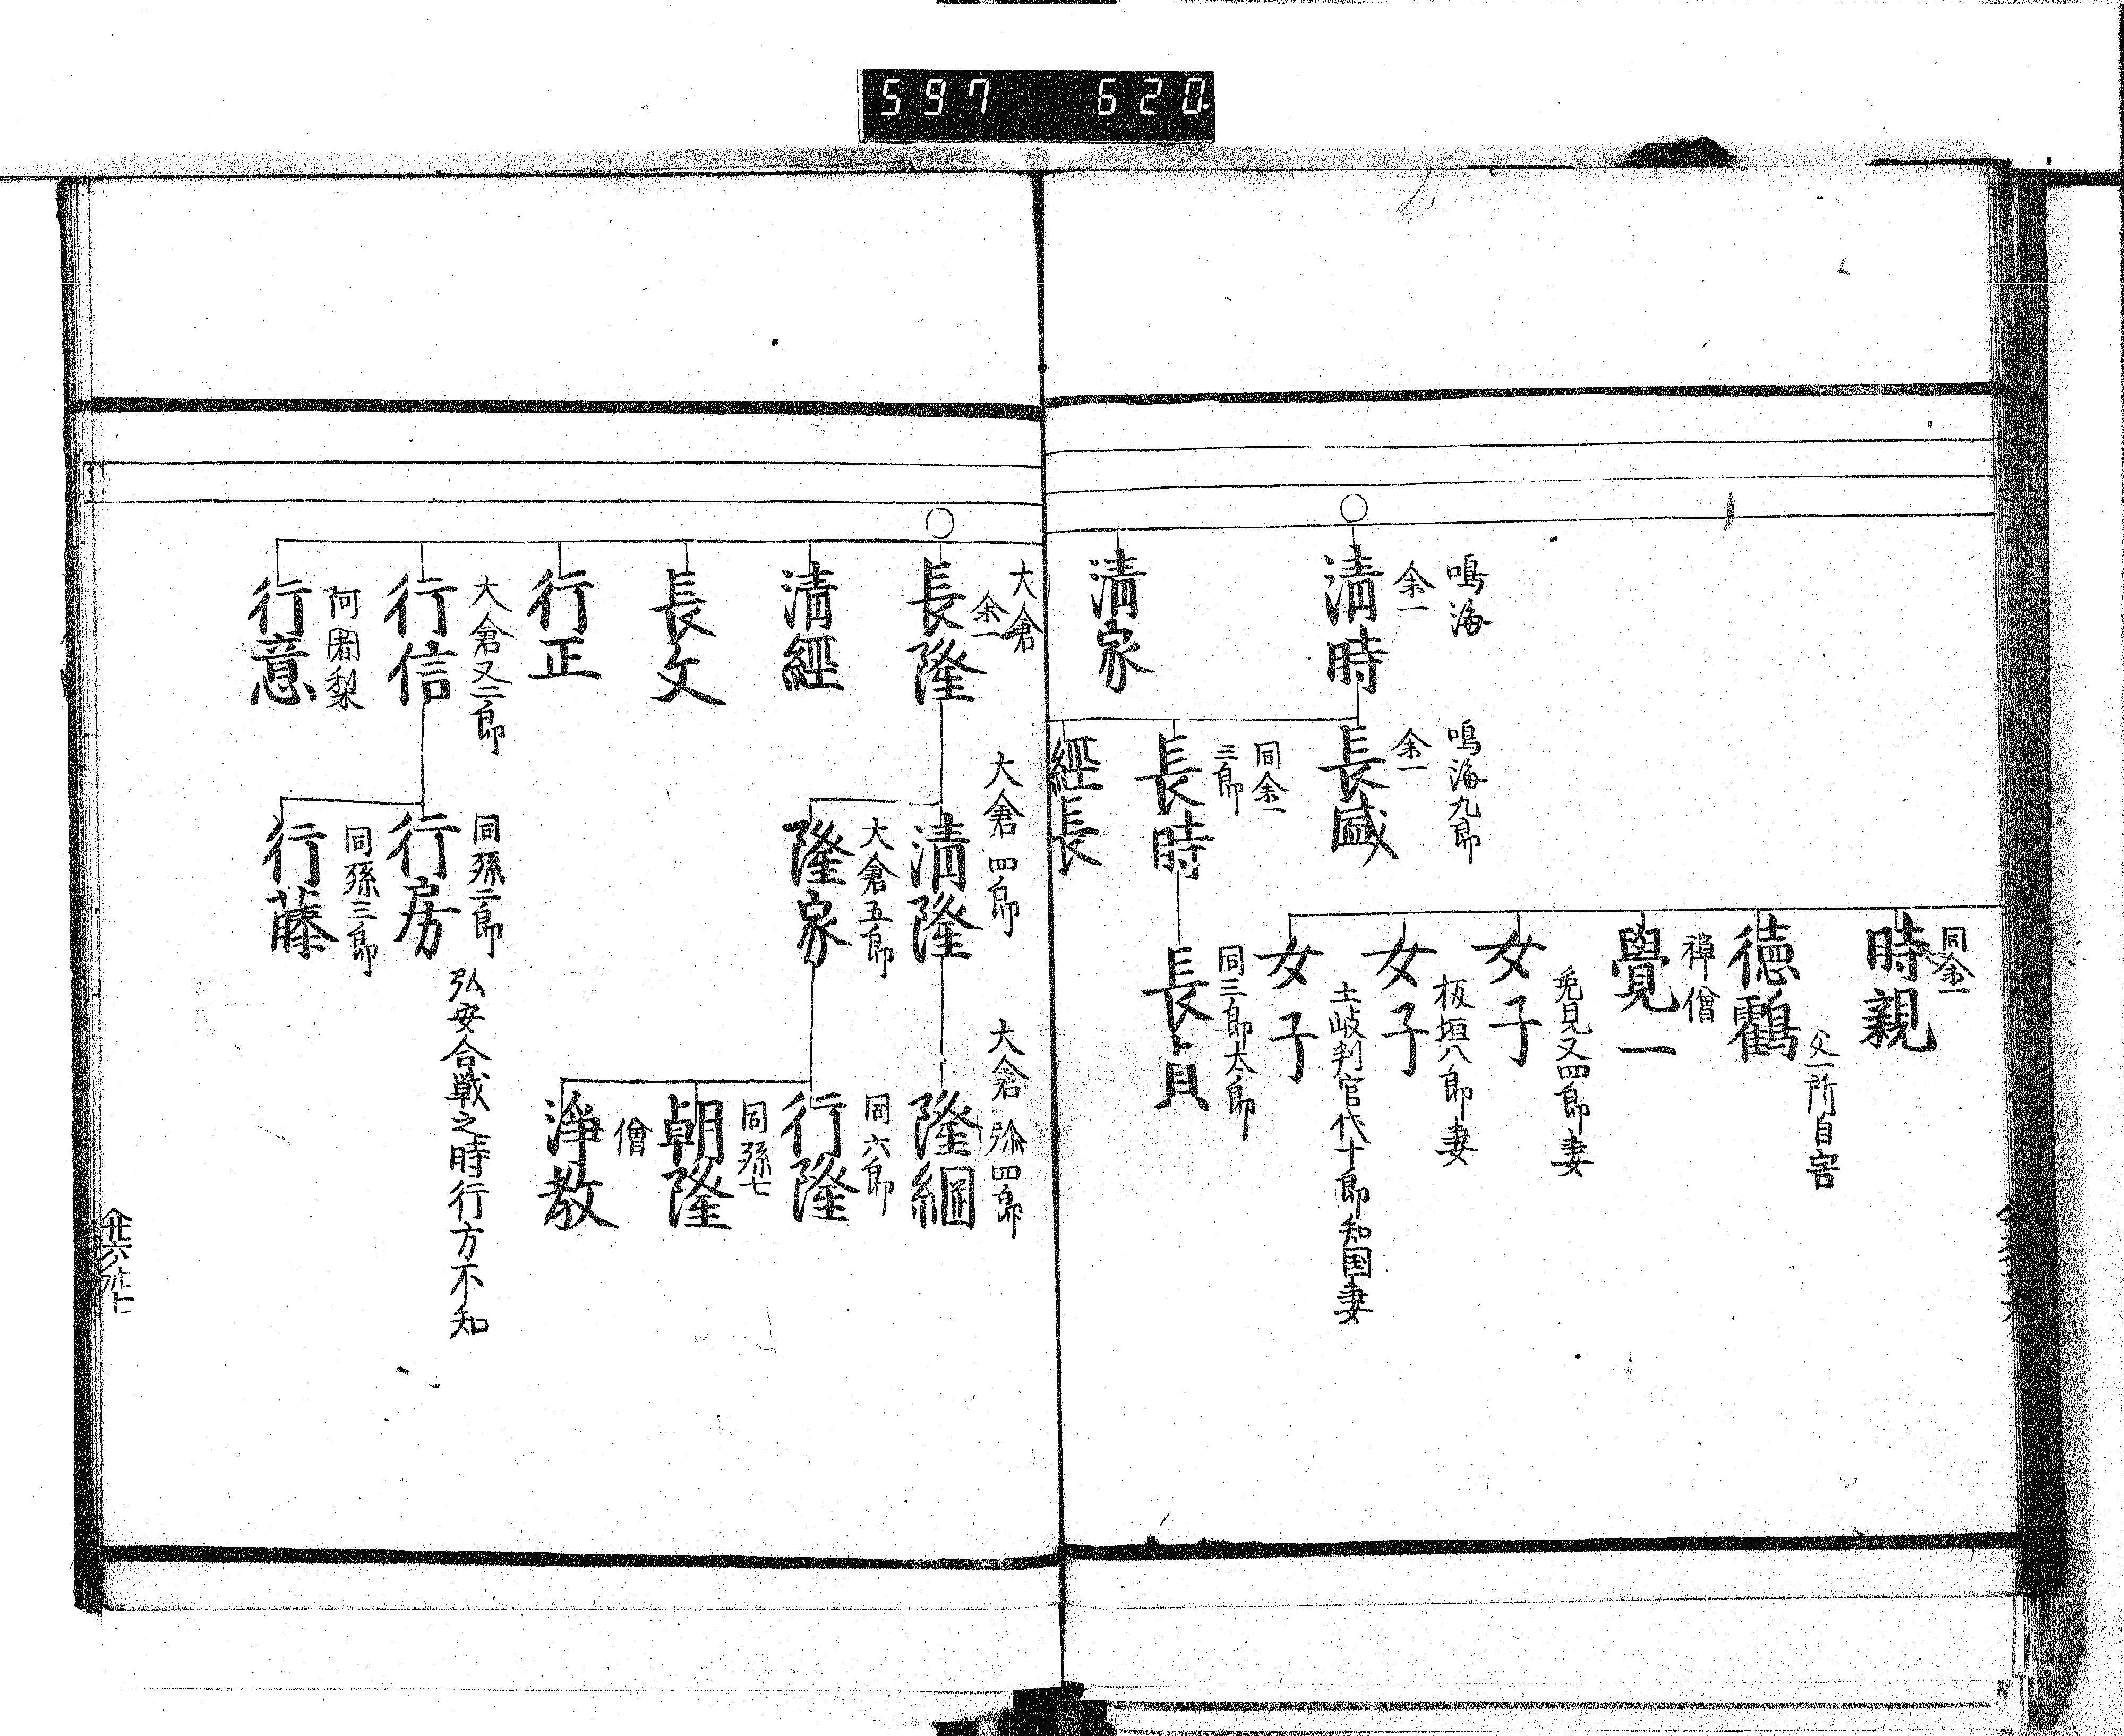 597 620
同余一
時親
父一所自害
徳鸖
禅僧
覺一
免見又四郎妻
女子
板垣八郎妻
女子
土岐判官代十郎知国妻
女子
鳴海
余一
清時
鳴海九郎
余一
長盛
同余一
三郎
長時
同三郎太郎
長貞
經長
清家
大倉
余一
長隆
大倉四郎
清隆
大倉弥四郎
隆綱
大倉五郎
隆家
同六郎
行隆
同孫七
朝隆
僧
淨教
清經
長文
行正
大倉又二郎
行信
同孫二郎
行房
弘安合戦之時行方不知
同孫三郎
行藤
阿闍梨
行意